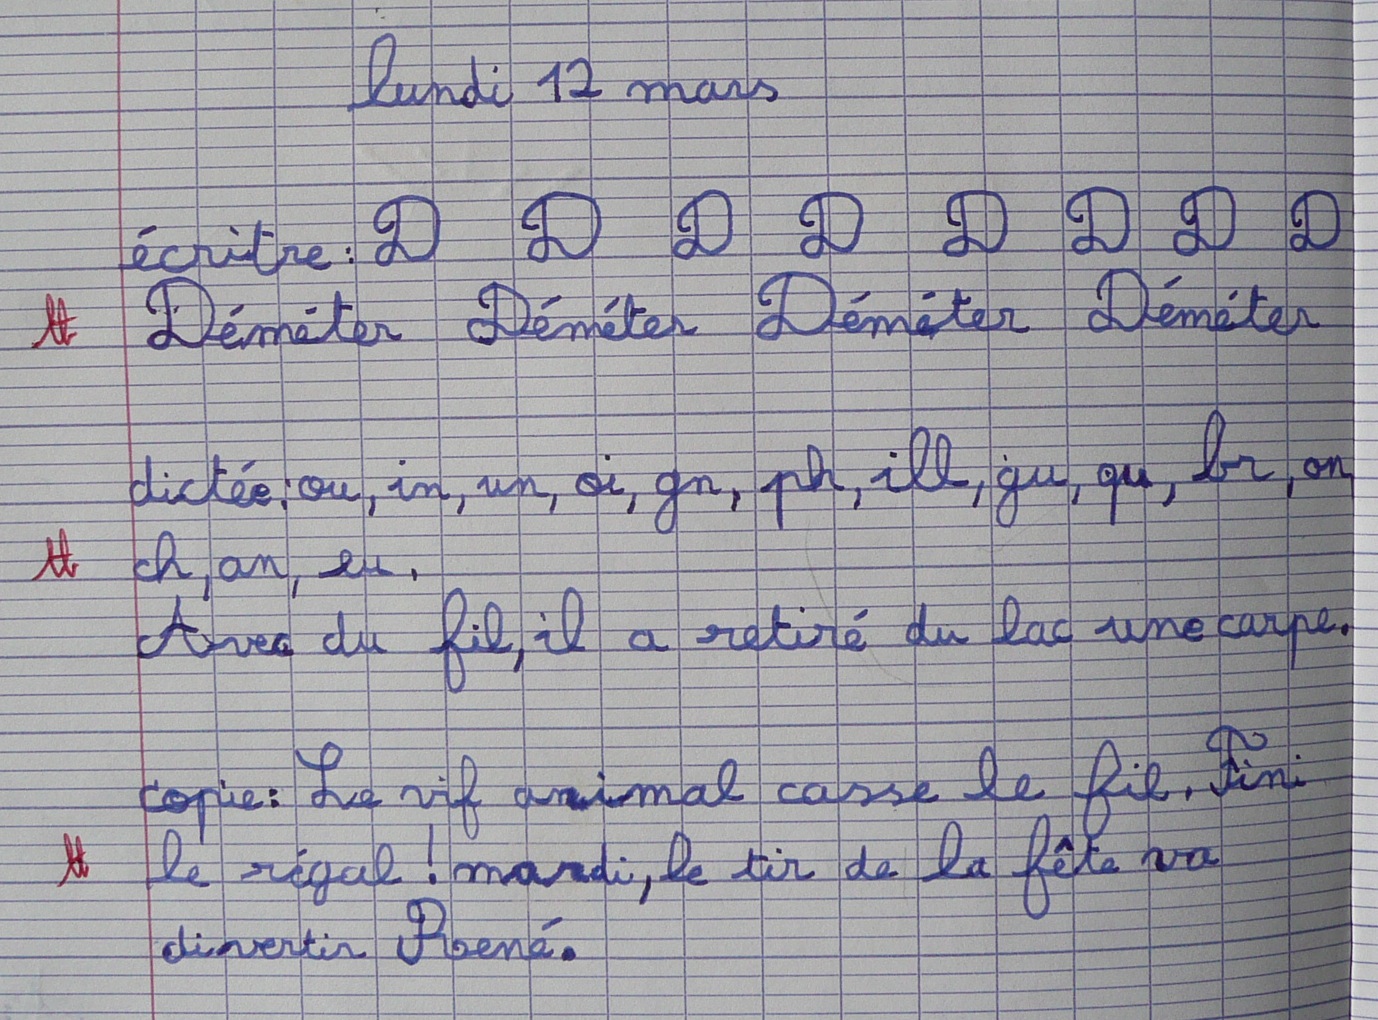 lundi 12 mars
écritre: D D D D D D D D
tt Déméter Déméter Déméter Déméter
dictée: ou, in, un, oi, gn, ph, ill, gu, qu, br, on
tt ch, an, eu.
Avec du fil, il a retiré du lac une carpe.
copie: Le vif animal casse le fil. Fini
tt le régal! mardi, le tir de la fête va
divertir René.